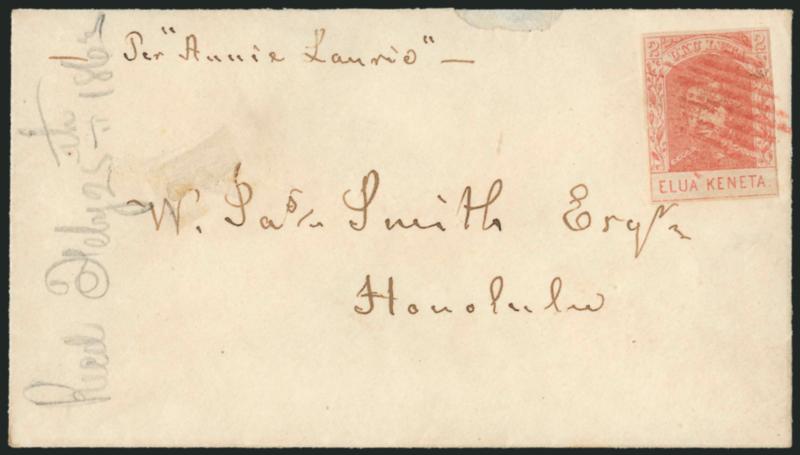 Per "Annie Laurie"
UKU LETA
ELUA KENETA.
W. Jas. Smith Esqr
Honolulu
Recd Feby 25th 1863